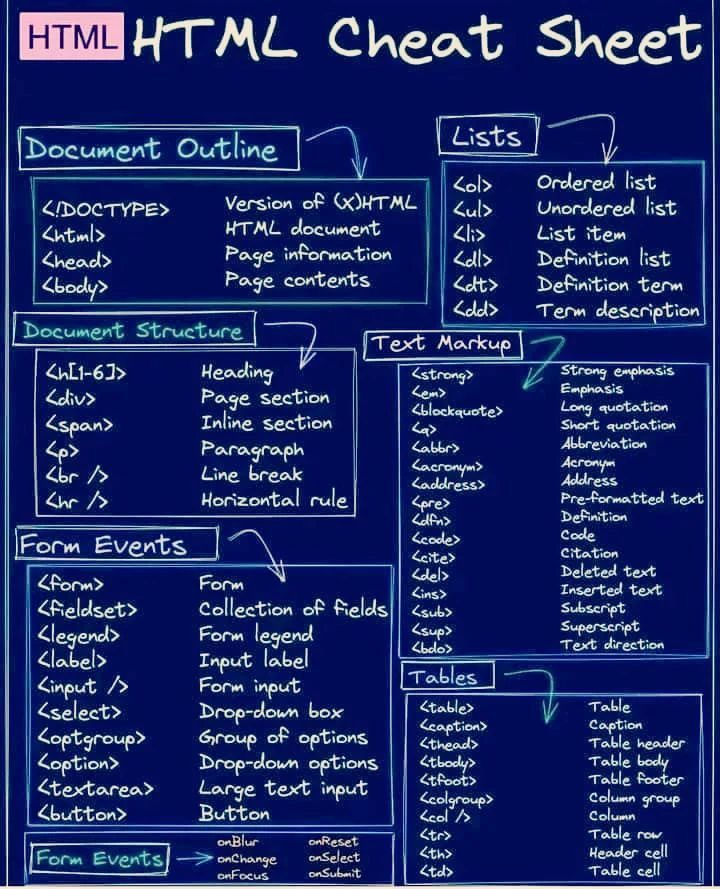 HTML HTML Cheat Sheet
Document Outline
<!DOCTYPE> Version of (X)HTML
<html> HTML document
<head> Page information
<body> Page contents
Lists
<ol> Ordered list
<ul> Unordered list
<li> List item
<dl> Definition list
<dt> Definition term
<dd> Term description
Document Structure
<h[1-6]> Heading
<div> Page section
<span> Inline section
<p> Paragraph
<br /> Line break
<hr /> Horizontal rule
Text Markup
<strong> Strong emphasis
<em> Emphasis
<blockquote> Long quotation
<q> Short quotation
<abbr> Abbreviation
<acronym> Acronym
<address> Address
<pre> Pre-formatted text
<dfn> Definition
<code> Code
<cite> Citation
<del> Deleted text
<ins> Inserted text
<sub> Subscript
<sup> Superscript
<bdo> Text direction
Form Events
<form> Form
<fieldset> Collection of fields
<legend> Form legend
<label> Input label
<input /> Form input
<select> Drop-down box
<optgroup> Group of options
<option> Drop-down options
<textarea> Large text input
<button> Button
Tables
<table> Table
<caption> Caption
<thead> Table header
<tbody> Table body
<tfoot> Table footer
<colgroup> Column group
<col /> Column
<tr> Table row
<th> Header cell
<td> Table cell
Form Events
onBlur onReset
onChange onSelect
onFocus onSubmit